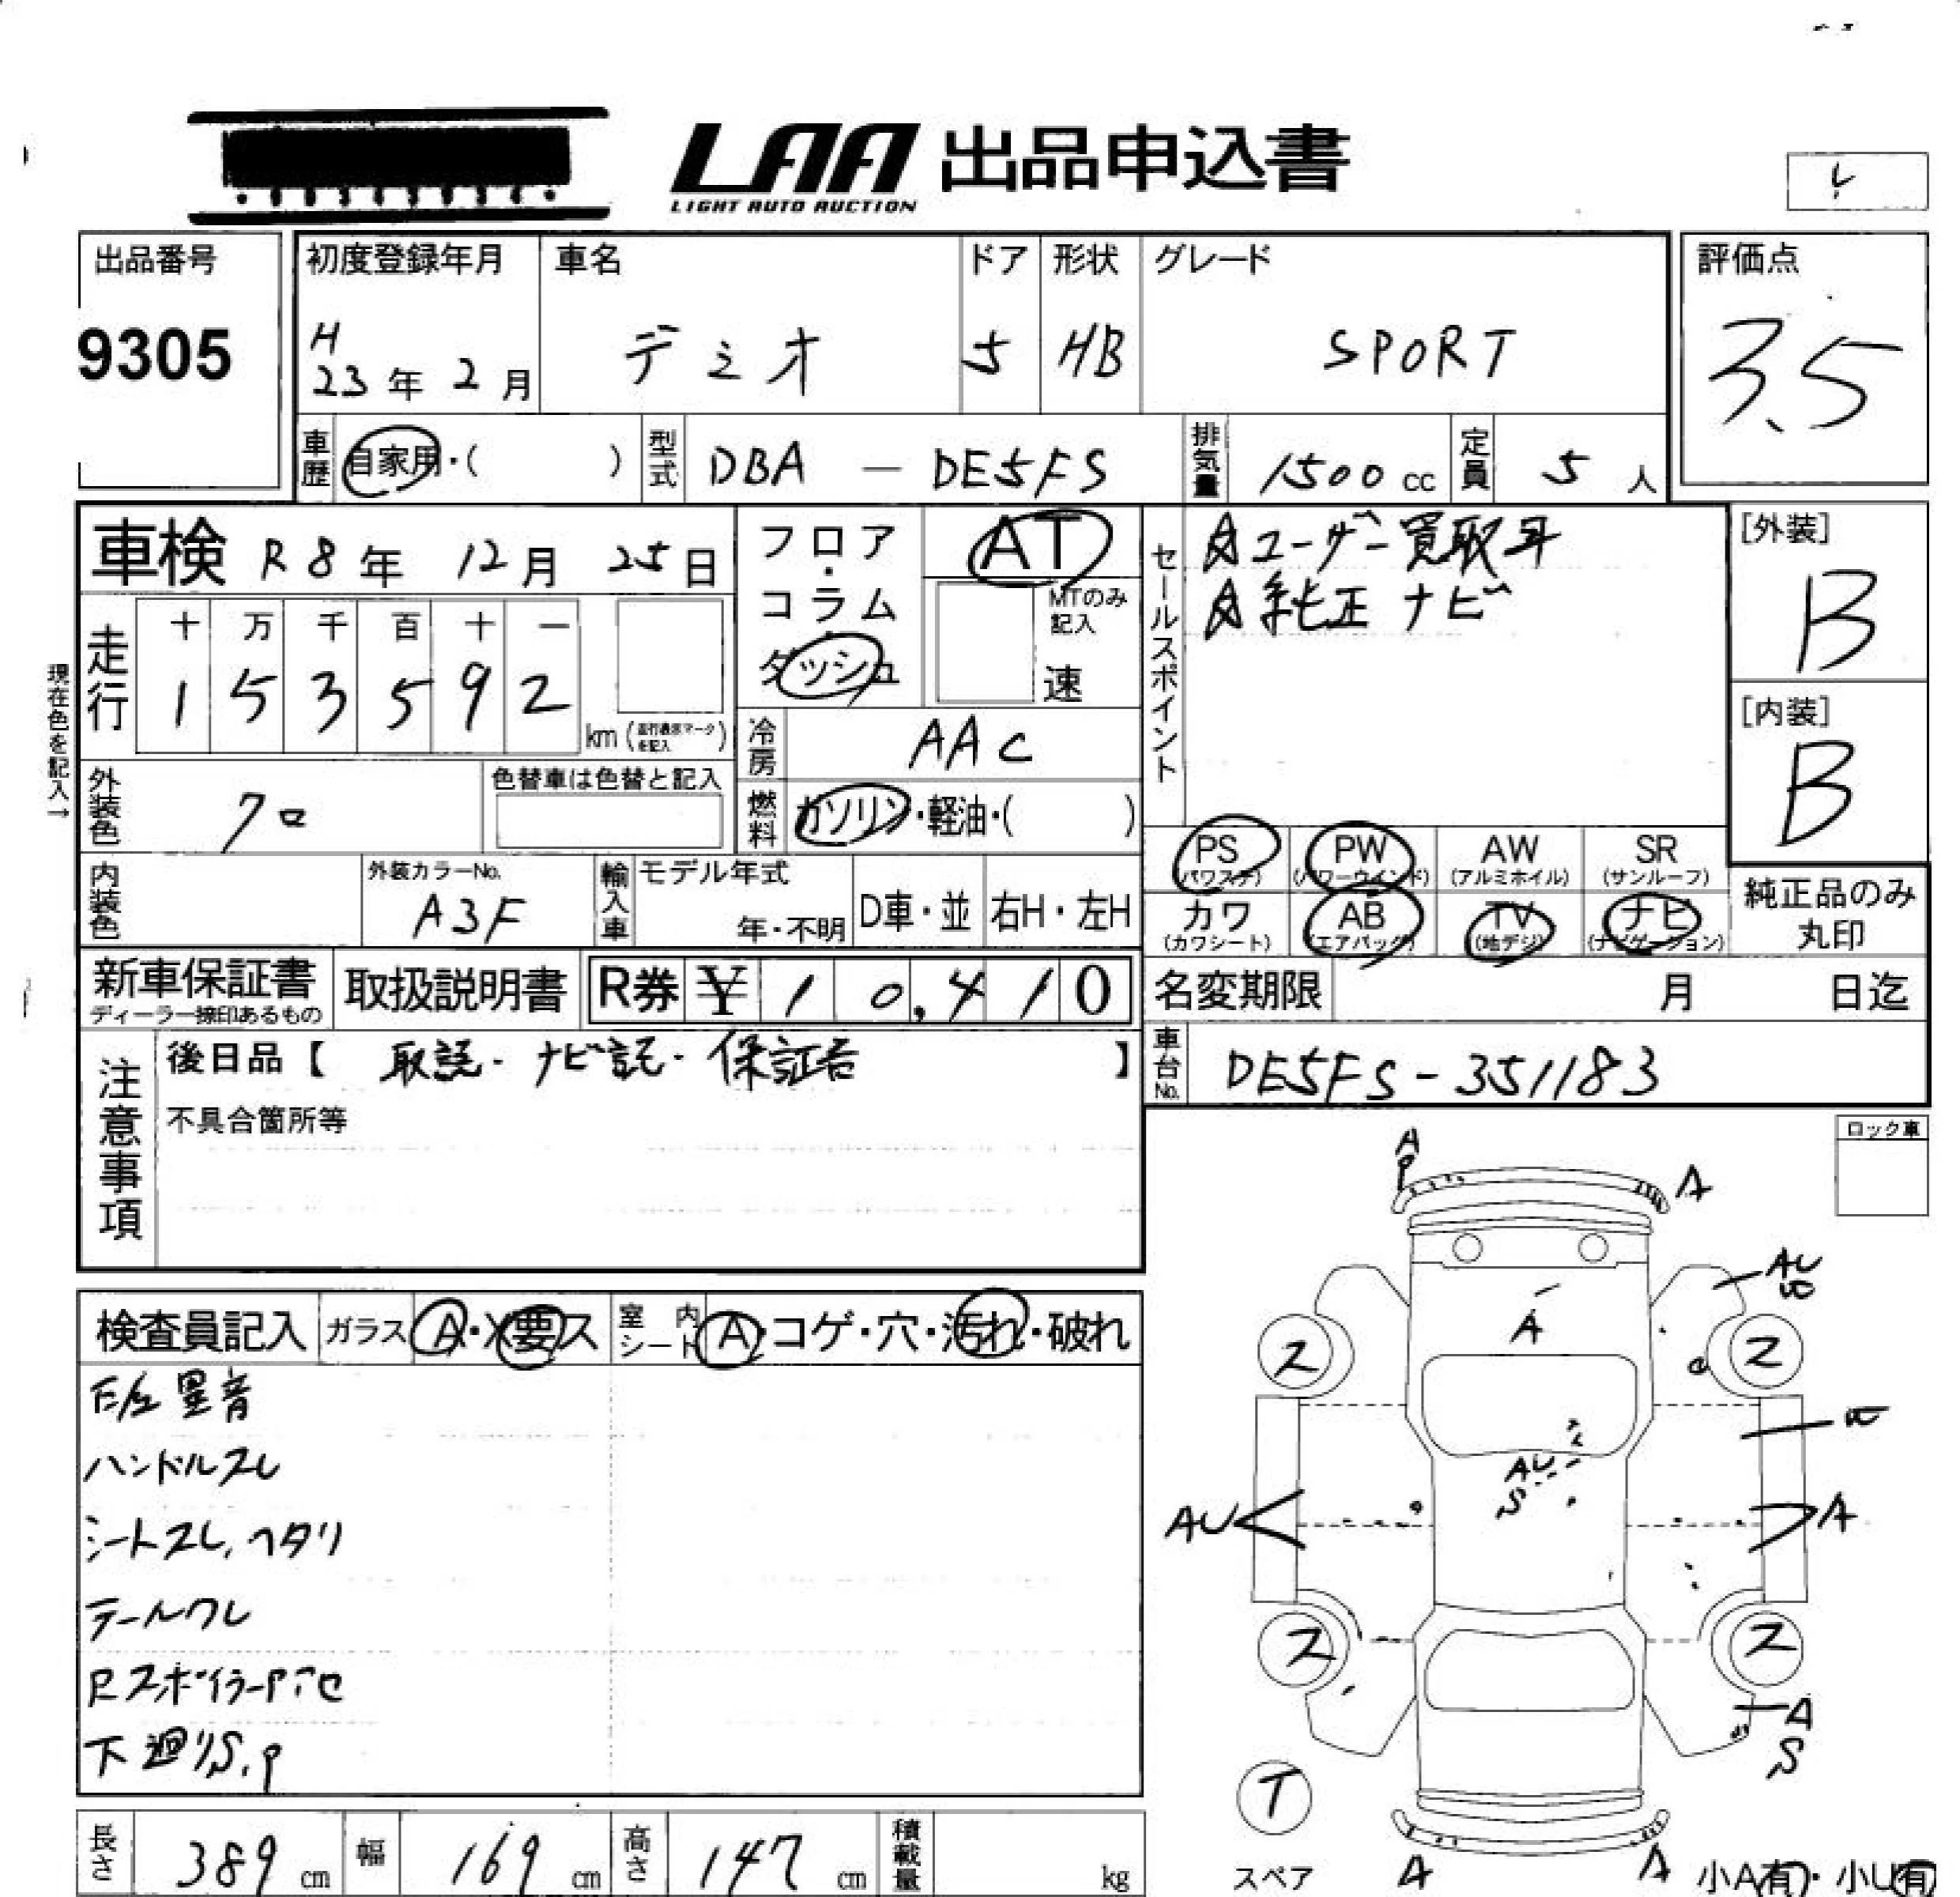 LAA 出品申込書
LIGHT AUTO AUCTION
出品番号
9305
初度登録年月
H
23年 2月
車名
デミオ
ドア
5
形状
HB
グレード
SPORT
評価点
3.5
車歴 自家用・( )
型式 DBA - DE5FS
排気量 1500 cc
定員 5 人
車検 R8年 12月 25日
フロア・コラム・ダッシュ
AT
MTのみ記入
速
セールスポイント
ユーザー買取車
純正ナビ
[外装]
B
[内装]
B
現在色を記入→
走行
十 万 千 百 十 一
1 5 3 5 9 2
km
冷房 AAC
燃料 ガソリン・軽油・( )
外装色 クロ
色替車は色替と記入
PS (パワステ)
PW (パワーウインド)
AW (アルミホイル)
SR (サンルーフ)
カワ (カワシート)
AB (エアバッグ)
TV (地デジ)
ナビ (ナビゲーション)
純正品のみ
丸印
内装色
外装カラーNo.
A3F
輸入車
モデル年式
年・不明
D車・並
右H・左H
新車保証書
ディーラー捺印あるもの
取扱説明書
R券 ¥ 1 0,4 1 0
名変期限 月 日迄
注意事項
後日品【 取説・ナビ記・保証書 】
不具合箇所等
車台No. DE5FS-351183
ロック車
検査員記入
ガラス A・X要ス
室内シート A・コゲ・穴・汚れ・破れ
異音
ハンドルスレ
シートスレ,ヘタリ
テールワレ
Rスポイラー
下廻りS.P
A
P
A
AU
A
ス
ス
AU
S
AU
A
ス
ス
A
S
T
スペア
A
A
小A有・小U有
長さ 389 cm
幅 169 cm
高さ 147 cm
積載量 kg